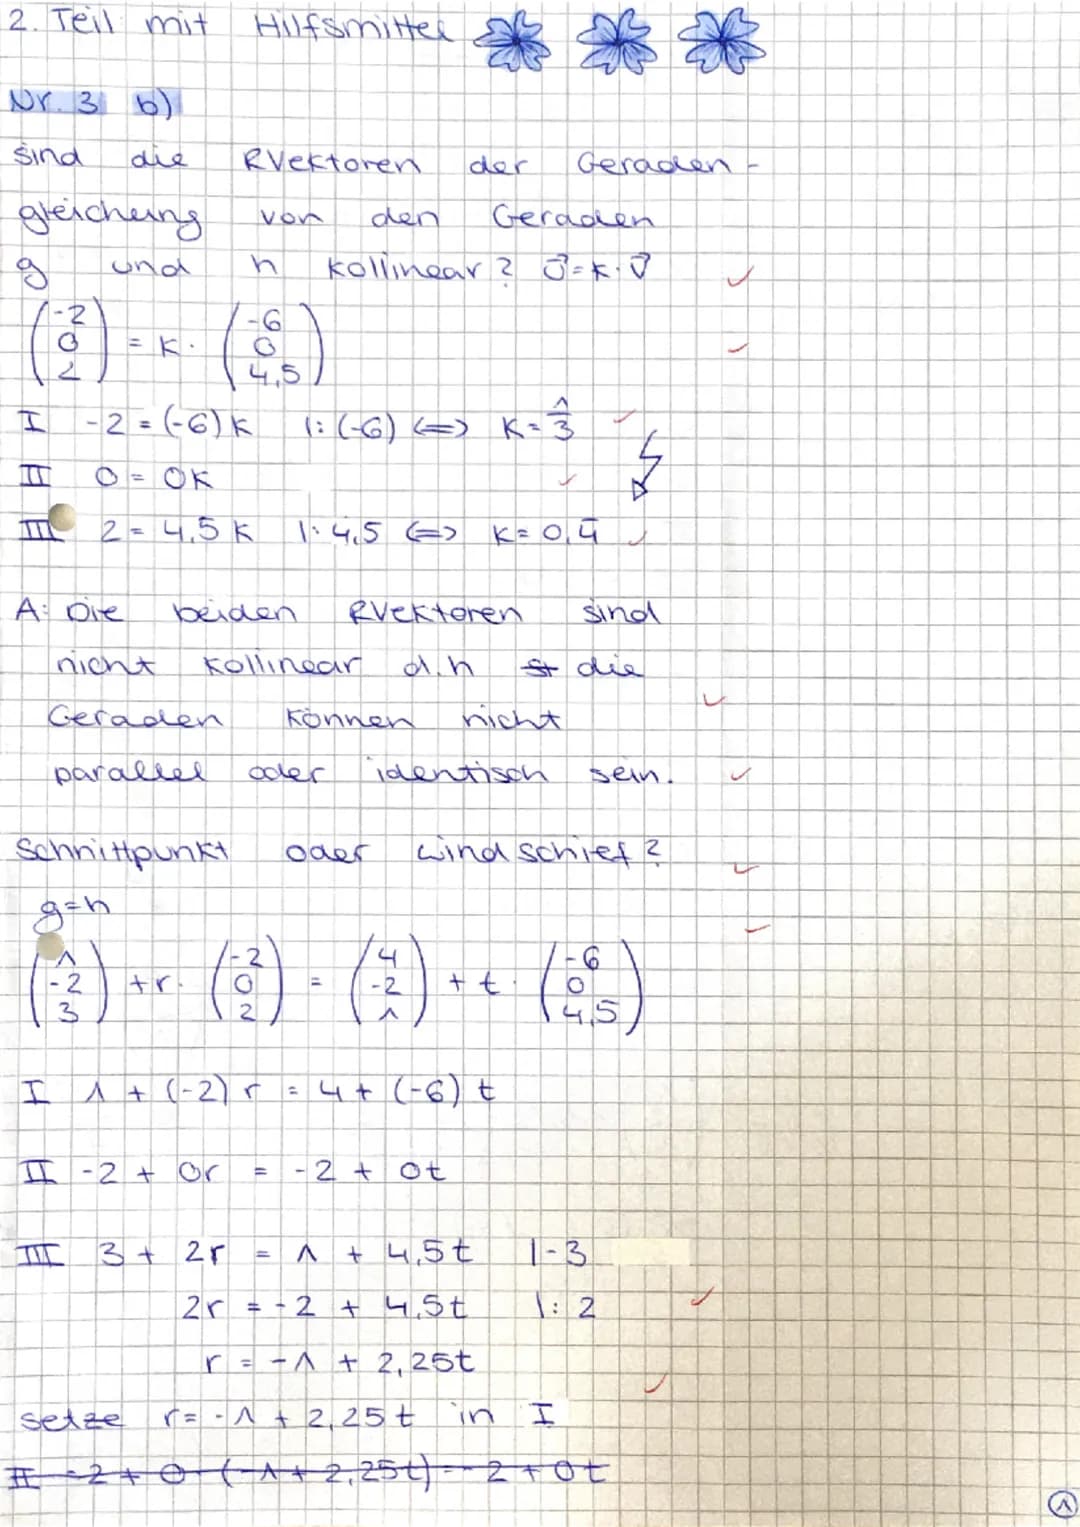 2. Teil mit Hilfsmittel
Nr. 3 b)
sind die RVektoren der Geraden-
gleichung von den Geraden
g und h kollinear? v⃗=k·v⃗
(-2 0 2) = k · (-6 0 4,5)
I -2 = (-6)k |: (-6) <=> k = 1/3
II 0 = 0k
III 2 = 4,5k |: 4,5 <=> k = 0,4̄
A: Die beiden RVektoren sind
nicht kollinear d.h die
Geraden können nicht
parallel oder identisch sein.
Schnittpunkt oder windschief?
g=h
(1 -2 3) + r · (-2 0 2) = (4 -2 1) + t · (-6 0 4,5)
I 1 + (-2) r = 4 + (-6) t
II -2 + 0r = -2 + 0t
III 3 + 2r = 1 + 4,5t |-3
2r = -2 + 4,5t |: 2
r = -1 + 2,25t
setze r = -1 + 2,25t in I
II -2 + 0 (-1 + 2,25t) = -2 + 0t
1